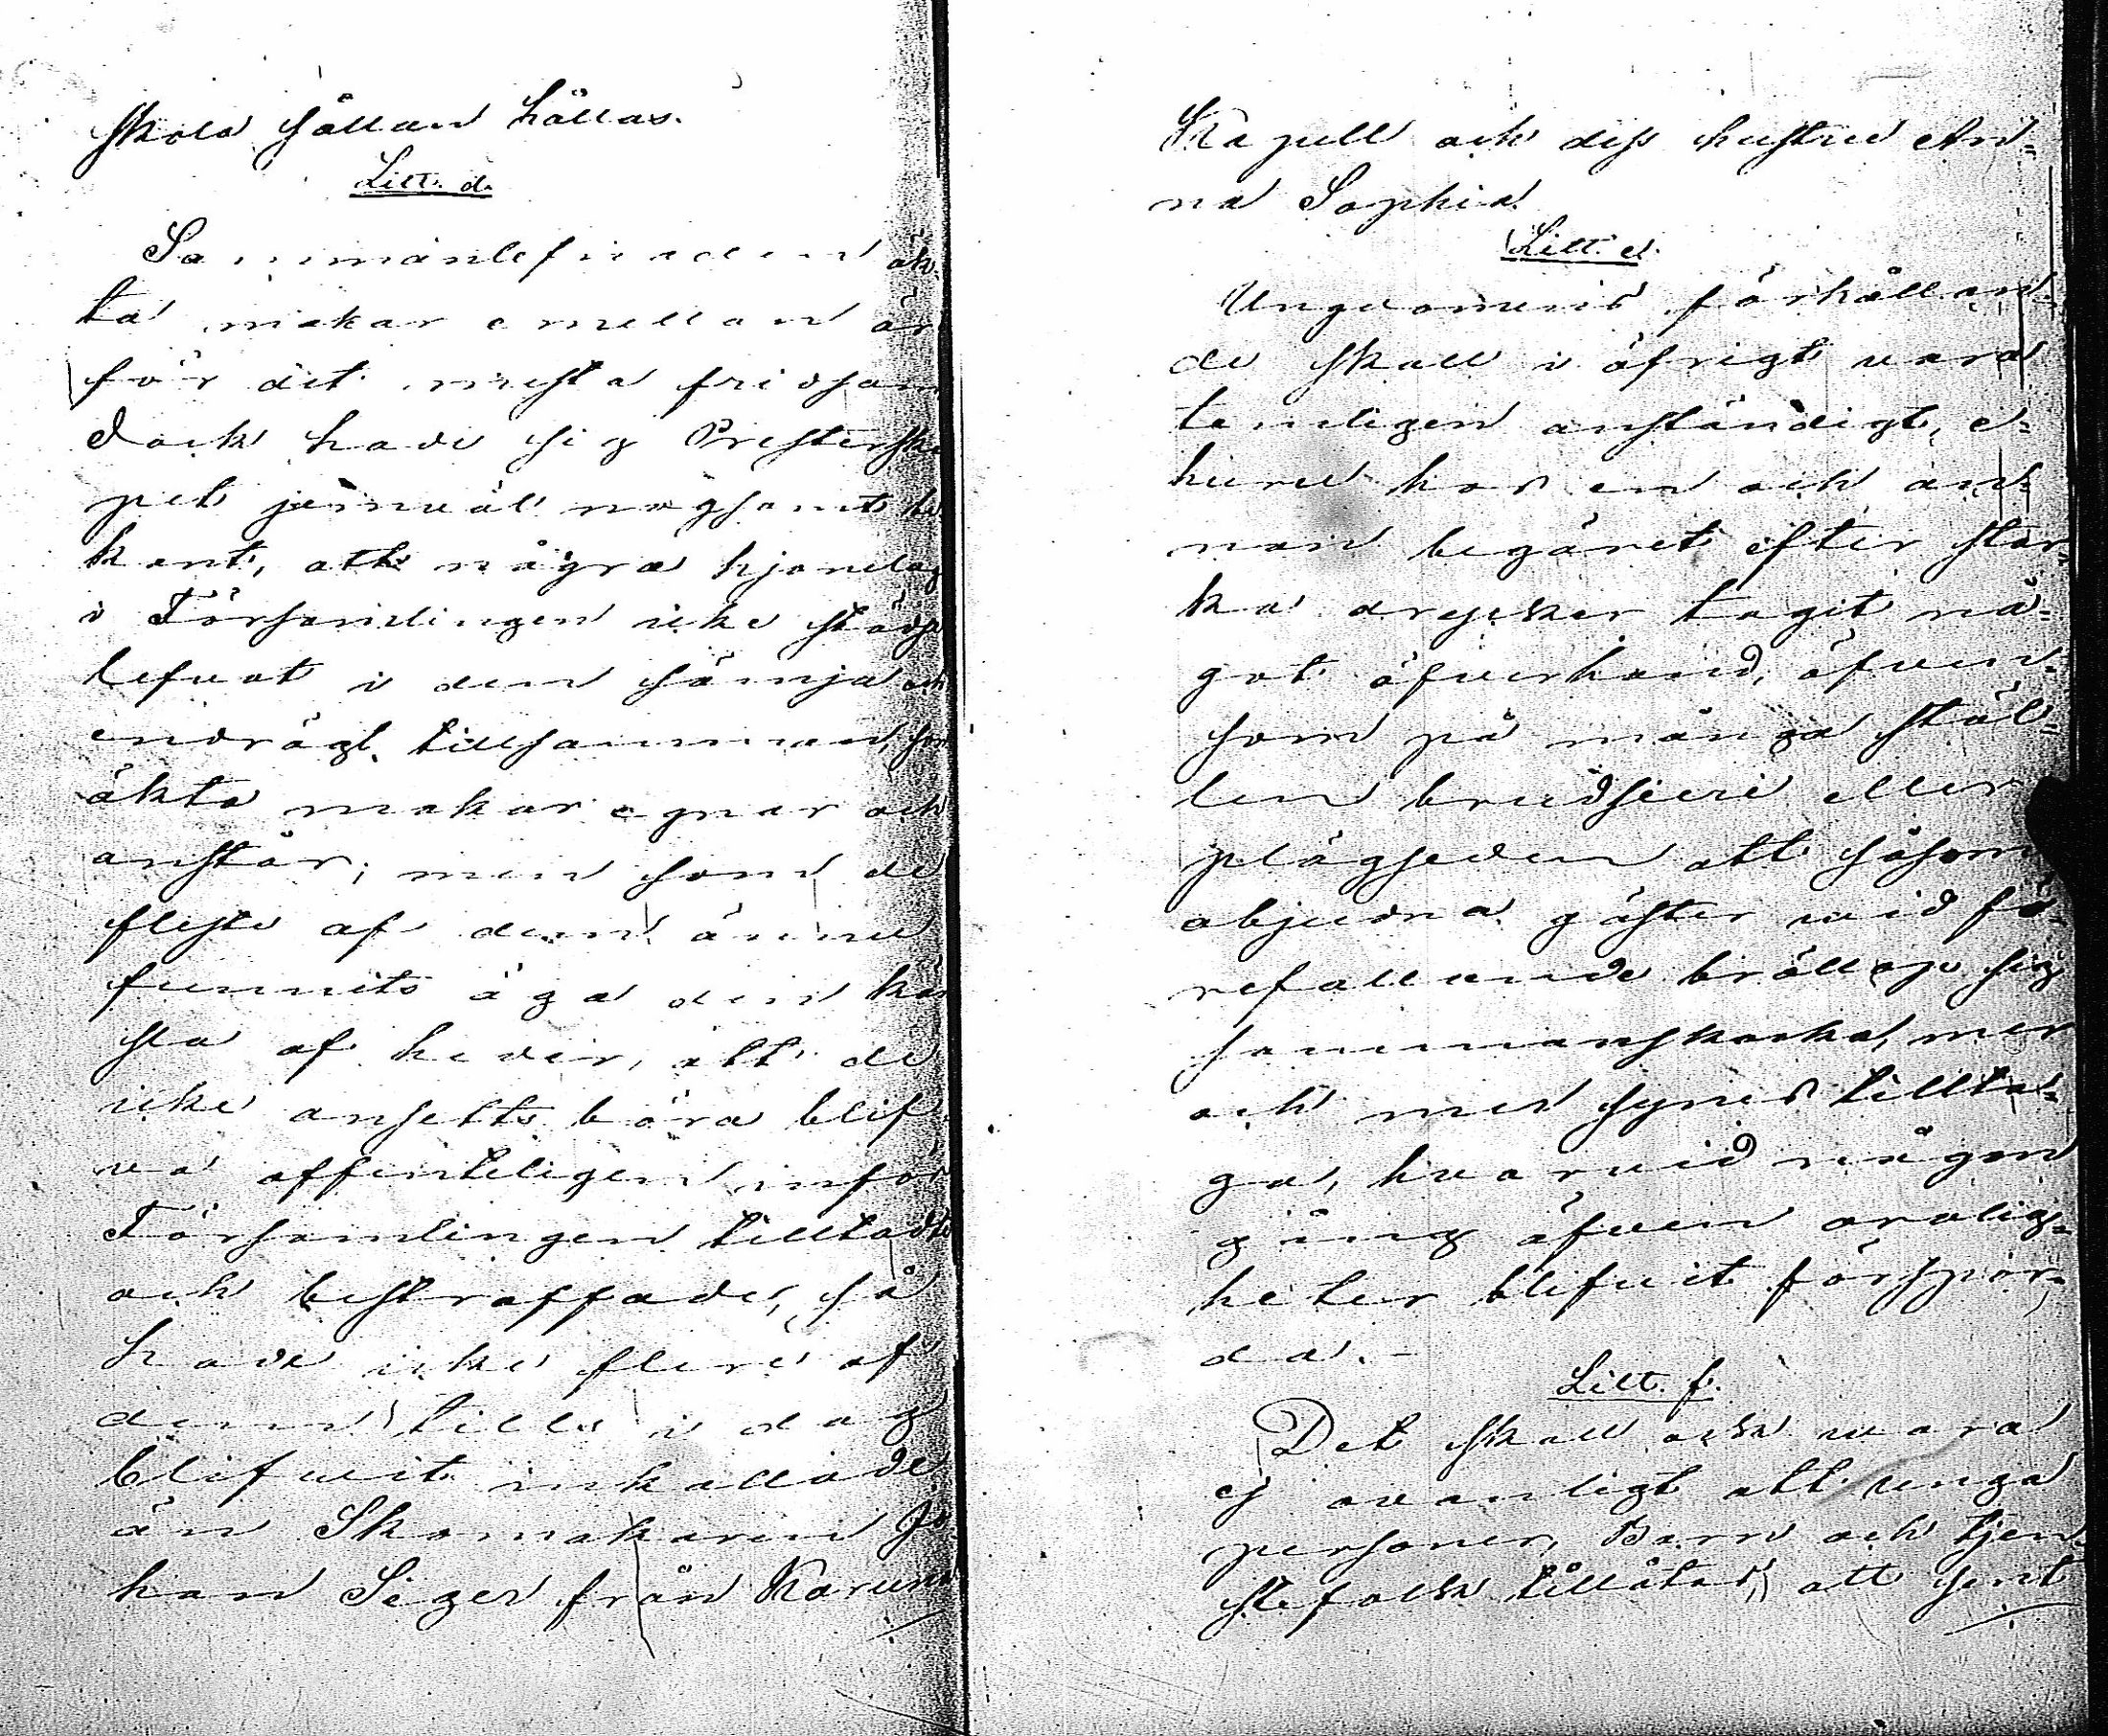 skola sällan hållas.
Litt. d.
Sammanlefnaden äk-
ta makar emellan är
för det mesta fridsam
dock hade sig Presterska
pet jemwäl nogsamt be
kant, att några hjonelag
i Församlingen icke städse
lefwat i den sämja och
endrägt tillsamman, som
äkta makar egnar och
anstår; men som de
fleste af dem ännu
funnits äga den kän
sla af heder, att de
icke ansetts böra blif
va offenteligen inför
Församlingen tilltalte
och bestraffade, så
hade icke flere af
dem till i dag
blifwit inkallade
än Skomakaren Jo-
han Seger från Karuna
Kapell och dess hustru An=
na Sophia.
Litt. e.
Ungdomens förhållan=
de skall i öfrigt vara
temligen anständigt, e=
huru hos en och an=
nan begäret efter star=
ka drycker tagit nå=
got öfverhand, äfven=
som på många stäl=
len brudsieri eller
plägseden att såsom
objudna gäster wid fö=
refallande bröllop sig
sammanskocka, mer
och mer synes tillta=
ga, hvarvid någon
gång äfven oredlig=
heter blifwit förspor=
da. -
Litt. f.
Det skall ock wara
ej ovanligt att unga
personer, Barn och tjen
stefolk tillåtas, att sent